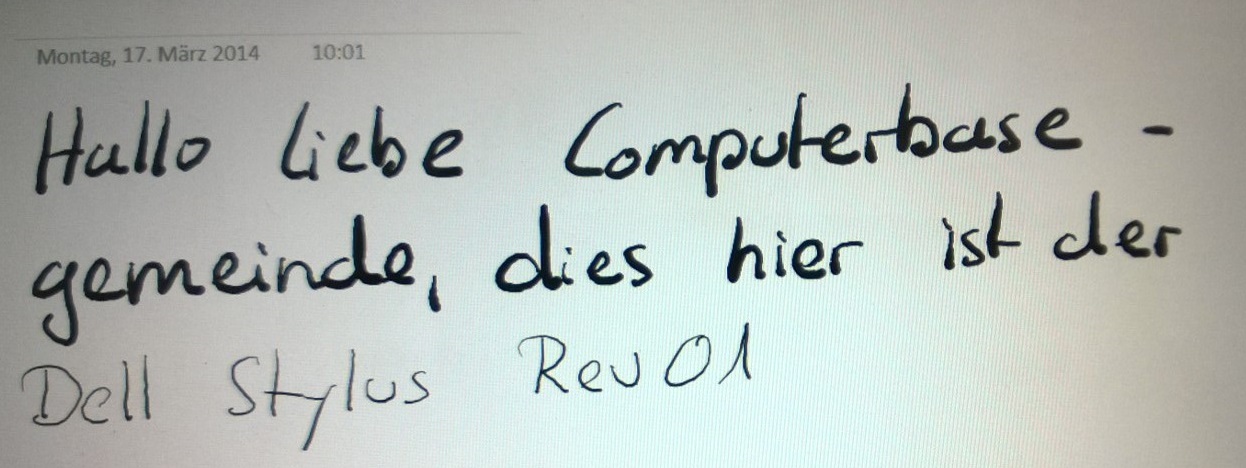 Montag, 17. März 2014 10:01
Hallo liebe Computerbase -
gemeinde, dies hier ist der
Dell Stylus Rev01